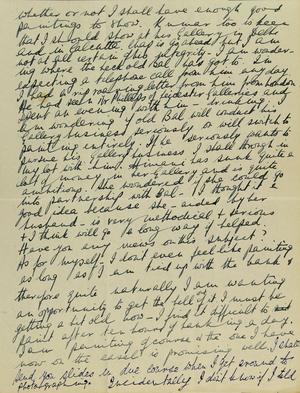 whether or not I shall have enough good
paintings to show. Kumar too is keen
that I should show at his Gallery in Delhi
and in Calcutta. Chap is go ahead but I'm
not at all certain of his integrity. I am wonder-
ing where the said old Bal has got to. I'm
expecting a telephone call from him any day
I had a rip roaring letter from him from London
He had seen Mr Phillips of Leicester Galleries and
spent an evening with him - drinking. I
am wondering if old Bal will conduct his
Gallery business seriously or will switch to
painting entirely. If he seriously wants to
pursue his Gallery business I shall throw in
my lot with him. has sunk quite a
lot of money in her Gallery and is quite
ambitious. She wondered if she could go
into partnership with Bal. I thought it a
good idea because she - aided by her
husband - is very methodical & serious
& I think will go a long way if helped.
Have you any views on this subject?
As for myself - I don't even feel like painting
as long as I am tied up with the bank &
therefore quite naturally I am wanting
an opportunity to get the hell of it. I must be
getting a bit old now - I find it difficult to
paint after ten hours of banking a day.
I am painting of course & the one I have
now on the easel is promising well. I shall
send you slides in due course when I get around to
photographing. Incidentally I don't know if I told